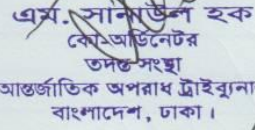 এম. সানাউল হক
কো-অর্ডিনেটর
তদন্ত সংস্থা
আন্তর্জাতিক অপরাধ ট্রাইব্যুনা
বাংলাদেশ, ঢাকা।